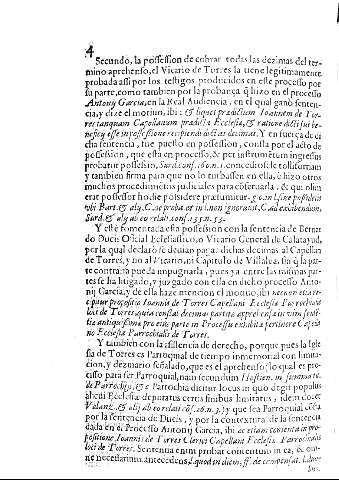 4
Secundo, la possession de cobrar todas las dezimas del ter-
mino aprehenso, el Vicario de Torres la tiene legitimamente
probada assi por los testigos producidos en este processo por
su parte, como tambien por la probança q̃ hizo en el processo
Antonij Garcia, en la Real Audiencia, en el qual ganò senten-
cia, y dize el motiuo, ibi: & liquet prædictum Ioannem de Tor-
res tanquam Capellanum prædictæ Ecclesiæ, & ratione dicti sui be-
neficij esse in possessione recipiendi dictas decimas. Y en fuerça de di-
cha sentencia, fue puesto en possession, consta por el acto de
possession, que està en processo, & per instrumētum ingressus
probatur possessio, Surd. conf. 160. n.1. concedese le tollisforum
y tambien firma para que no lo turbassen en ella, è hizo otros
muchos procedimiētos judiciales para cōseruarla. & qui olim
erat possessor hodie possidere præsumitur.
Surd. & alij ab eo relati conf. 153. n. 53.
Y esse fomentada esta possession con la sentencia de Bernar
do Ducis Oficial Eclesiastico, o Vicario General de Calatayud,
por la qual declarò se deuian pagar dichas dezimas al Capellan
de Torres, y no al Vicario, ni Capitulo de Villalua, sin q̃ la par-
te contraria pueda impugnarla, pues ya entre las mismas par-
tes se ha litigado, y juzgado con ella en dicho processo Anto-
nij Garcia, y de ella haze mencion el motiuo, ibi
propositio Ioannis de Torres Capellani Ecclesiæ Parrochia
loci de Torres, quia constat decimas partis apprehensæ in vim senten-
tiæ antiquissimæ pro eius parte in Processu exhibita pertinere Capella
no Ecclesiæ Parrochialis de Torres.
Y tambien con la assistencia de derecho, porque pues la Igle
sia de Torres es Parroquial de tiempo inmemorial con limita-
cion, y dezmario señalado, que es el aprehenso (lo qual es pre-
cisso para ser Parroquial, nam secundum Hostien. in summa tit.
de Parrochijs, & c Parrochia dicitur locus in quo degit populus
alicui Ecclesiæ deputatus certis finibus limitatus, idem docet
y que sea Parroquial cōsta
por la sentencia de Ducis, y por la contextura de la sentencia
dada en el Processo Antonij Garcia, ibi ac etiam contenta in pro-
positione Ioannis de Torres Clerici Capellani Ecclesiæ Parrochialis
loci de Torres. Sentenria enim probat contentum in ea, & om-
ne necessarium antecedens, l. quod in diem, ff. de compensat.